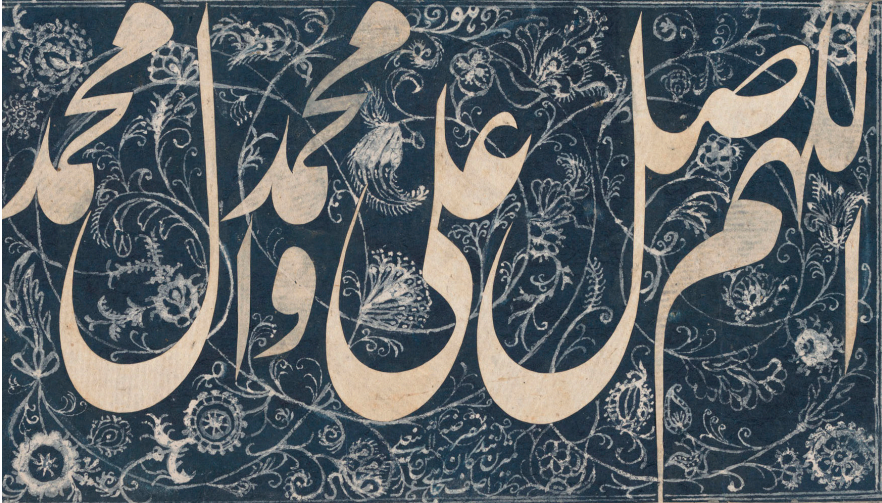 هو
اللهم صل علی محمد وال محمد